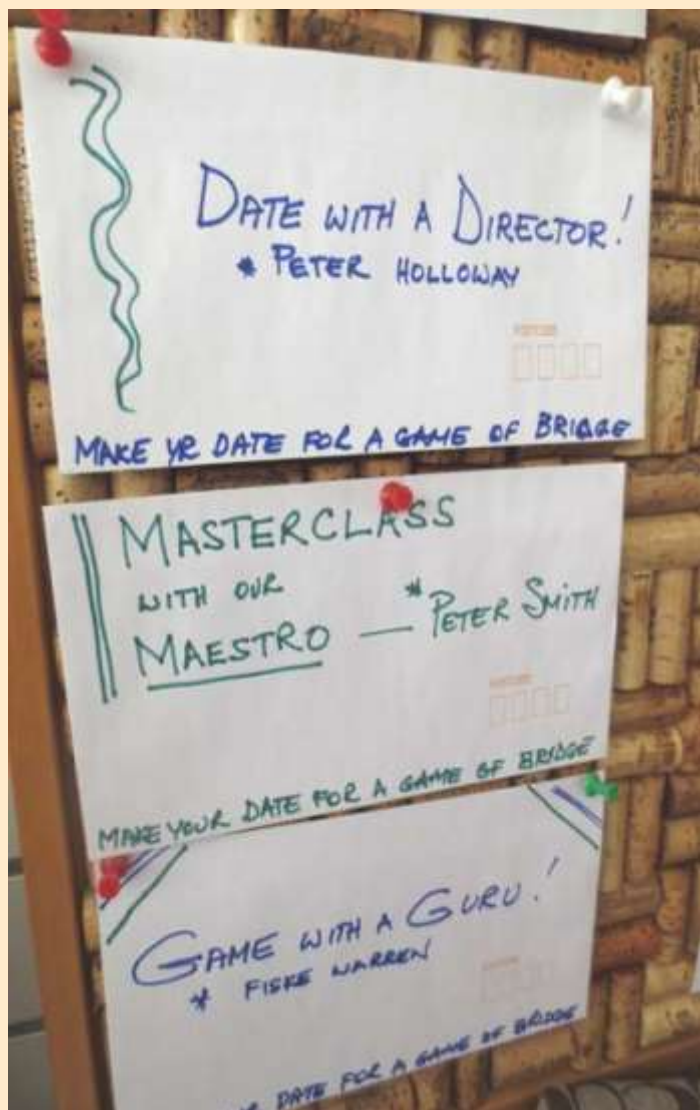 DATE WITH A DIRECTOR!
* PETER HOLLOWAY
MAKE YR DATE FOR A GAME OF BRIDGE
MASTERCLASS
WITH OUR
MAESTRO — * PETER SMITH
MAKE YOUR DATE FOR A GAME OF BRIDGE
GAME WITH A GURU!
* FISKE WARREN
DATE FOR A GAME OF BRIDGE